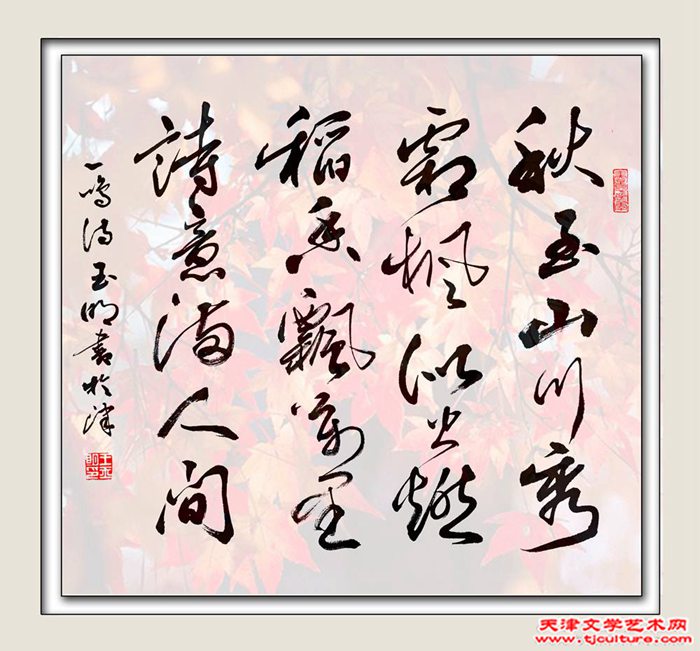 秋至山川秀
霜枫似火燃
稻香飘万里
詩意满人间
一鸣诗玉明書於津
天津文学艺术网
www.tjculture.com